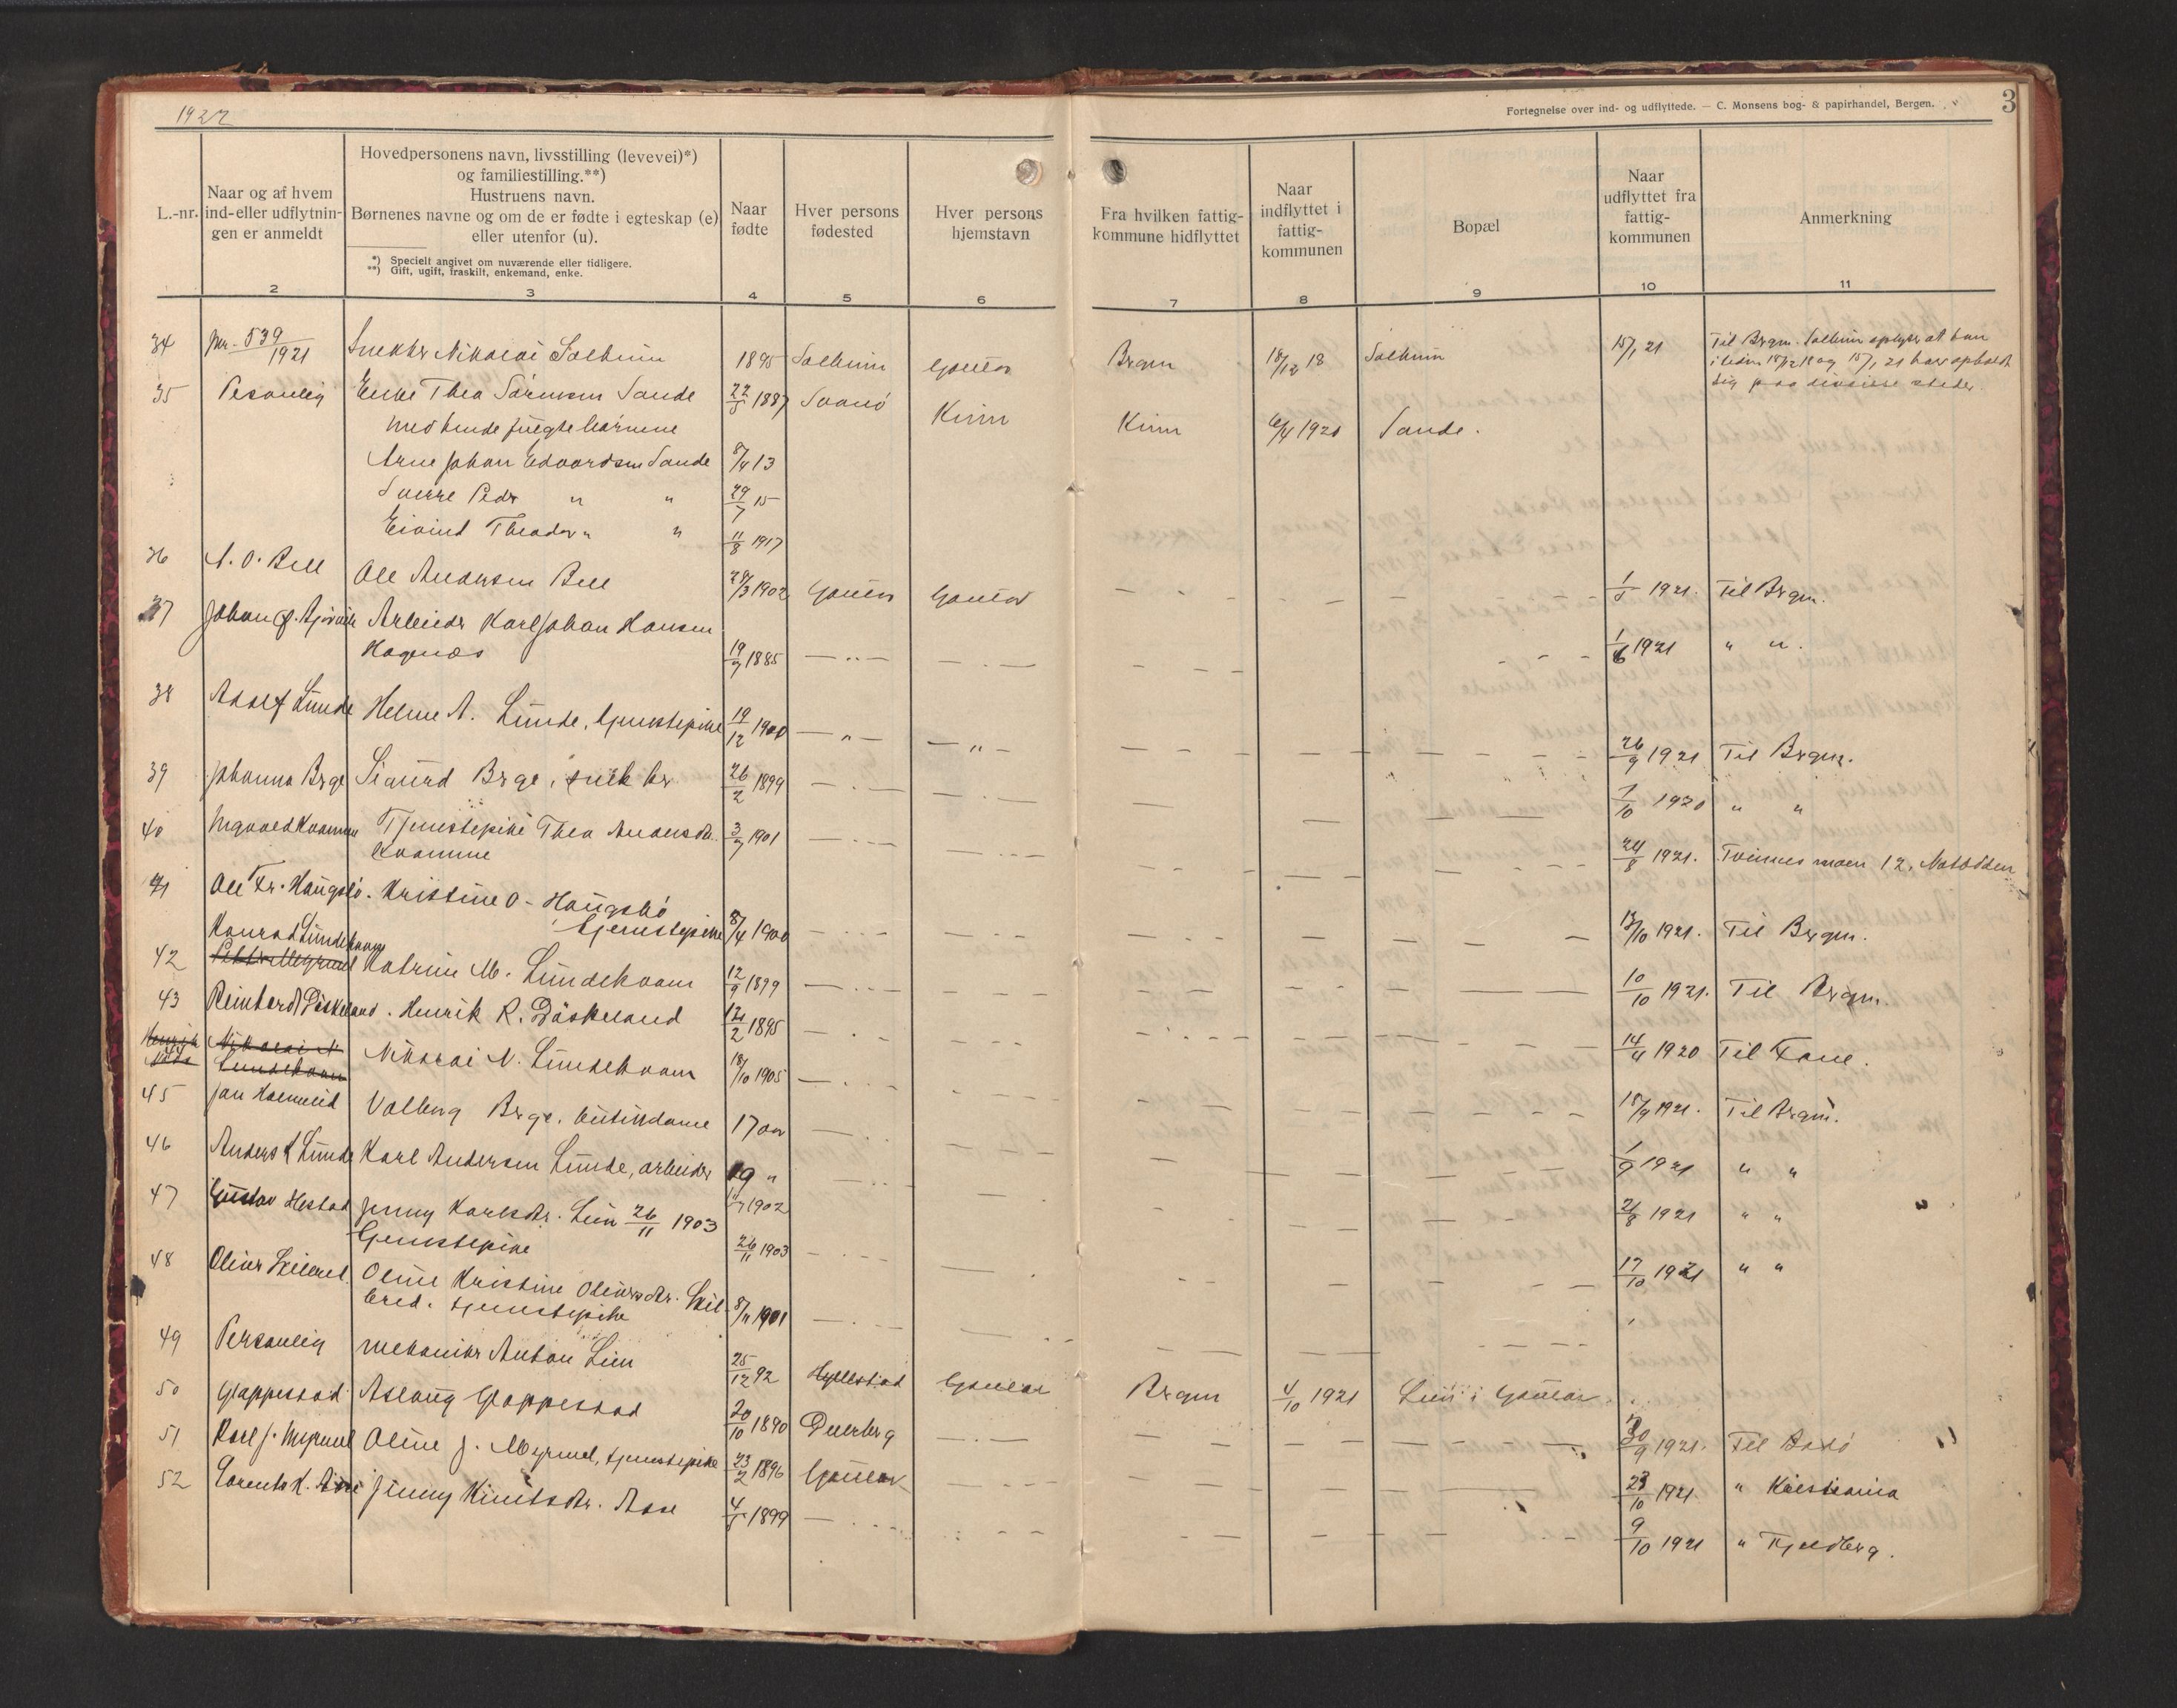 1922
Fortegnelse over ind- og udflyttede. — C. Monsens bog- & papirhandel, Bergen.
3
L.-nr.
Naar og af hvem ind- eller udflytningen er anmeldt
Hovedpersonens navn, livsstilling (levevei)*) og familiestilling.**)
Hustruens navn.
Børnenes navne og om de er fødte i egteskap (e) eller utenfor (u).
*) Specielt angivet om nuværende eller tidligere.
**) Gift, ugift, fraskilt, enkemand, enke.
Naar fødte
Hver persons fødested
Hver persons hjemstavn
Fra hvilken fattigkommune hidflyttet
Naar indflyttet i fattigkommunen
Bopæl
Naar udflyttet fra fattigkommunen
Anmerkning
2 3 4 5 6 7 8 9 10 11
34 Jnr. 539/1921 Snekker Nikolai Solheim 1895 Solheim Gaular Bergen 18/12 18 Solheim 15/1 21 Til Bergen. Solheim oplyser at han
i tiden 18/12 18 og 15/1 21 har opholdt
sig paa diverse steder
35 Personlig Enke Thea Sørensen Sande 22/5 1887 Svanø Kinn Kinn 6/4 1920 Sande.
med hende fulgte børnene
Arne Johan Edvardsen Sande 8/4 13
Sverre Peder " " 29/7 15
Eivind Theodor " " 11/8 1917
36 A. O. Bell Ole Andersen Bell 29/3 1902 Gaular Gaular — 1/5 1921. Til Bergen.
37 Johan Arbeider Karl Johan Hansen
Hagnæs 19/7 1885 — " — — " — 1/6 1921 " "
38 Adolf Lunde Helene A. Lunde, tjenestepike 19/12 1900 — " — — " — 26/9 1921 Til Bergen.
39 Johanna Berge Sigurd Berge, snekker 26/2 1899 — " — — " — 1/10 1920 " "
40 Ingvald Kvamme Tjenestepike Thea Andersdtr.
Kvamme 3/7 1901 — " — — " — 24/8 1921. Tveimesmoen 12, Notodden
41 Ole Fr. Haugsbø. Kristine O. Haugsbø
tjenestepike 8/4 1900 — " — — " — 13/10 1921. Til Bergen.
Konrad Lundekvam
42 Katrine M. Lundekvam 12/9 1899 — " — — " — 10/10 1921. Til Bergen.
43 Reinhard Døskeland. Henrik R. Døskeland 12/2 1895 — " — — " — 14/4 1920 Til Fane.
Nikolai N. Lundekvam
Nikolai N. Lundekvam 18/10 1905 — " — — " — 15/9 1921. Til Bergen.
45 Jan Holmelid Valborg Berge, butikdame 17 aar — " — 1/9 1921 " "
46 Anders K Lunde Karl Andersen Lunde, arbeider 19 "
1902 — " — 21/8 1921 " "
47 Gustav Hestad Jenny Karlsdtr. Lien 26/11 1903
Tjenestepike 26/11 1903 — " — 17/10 1921 " "
48 Oliver Skilbred. Oline Kristine Oliversdtr. Skil-
bred. tjenestepike 8/11 1901 — " —
49 Personlig mekaniker Anton Lien 25/12 92 Hyllestad Gaular Bergen 4/10 1921 Lien i Gaular
50 Grappestad Aslaug Grappestad 20/10 1890 — " — 30/9 1921. Til Bodø
51 Karl J. Myrmel Oline J. Myrmel, tjenestepike 23/2 1896 Gaular — " — 23/10 1921. " Kristiania
52 Lorents K. Jenny Knutsdtr. Aase 4/5 1899 — " — 9/10 1921 " Fjeldberg.